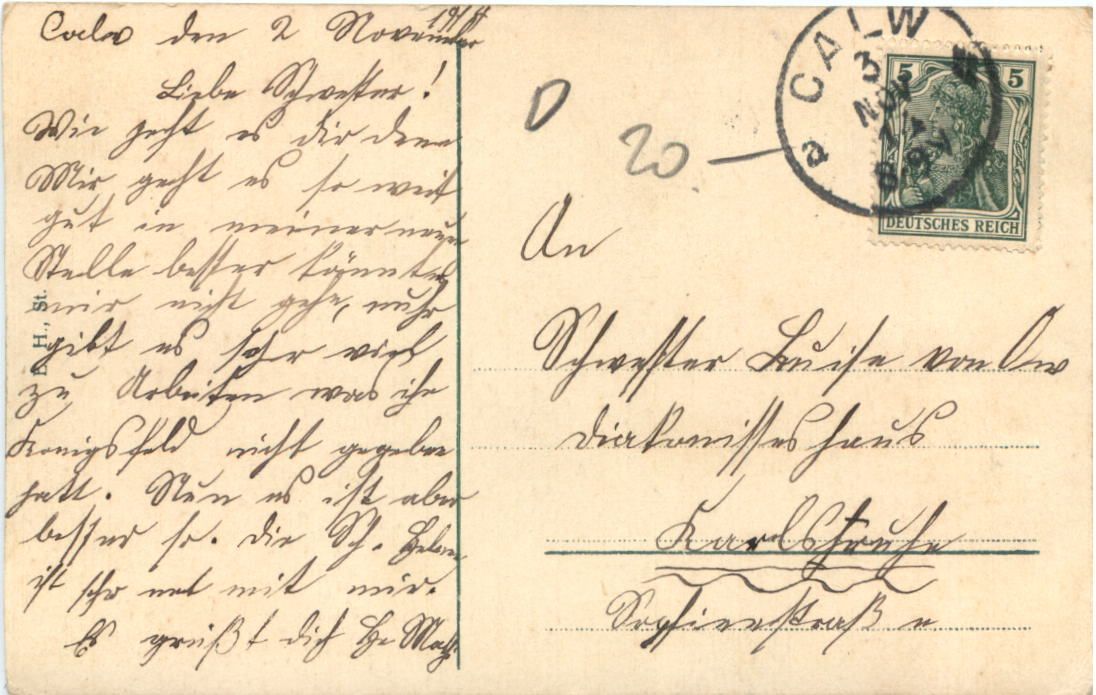 Calw den 2 November
Liebe Schwester!
Wie geht es dir denn
Mir geht es so weit
gut in meiner neuen
Stelle besser könnte es
mir nicht gehe, nuhr
gibt es sehr viel
zu Arbeiten was in
Königsfeld nicht gegeben
hatt. Nun es ist aber
besser so. die Sch.
ist sehr nett mit mir.
Es grüßt dich
E. H., St.
D
20
a CALW
3
NOV
5 5
DEUTSCHES REICH
An
Schwester Luise von Ow
Diakonissenhaus
Karlsruhe
Sophienstraße